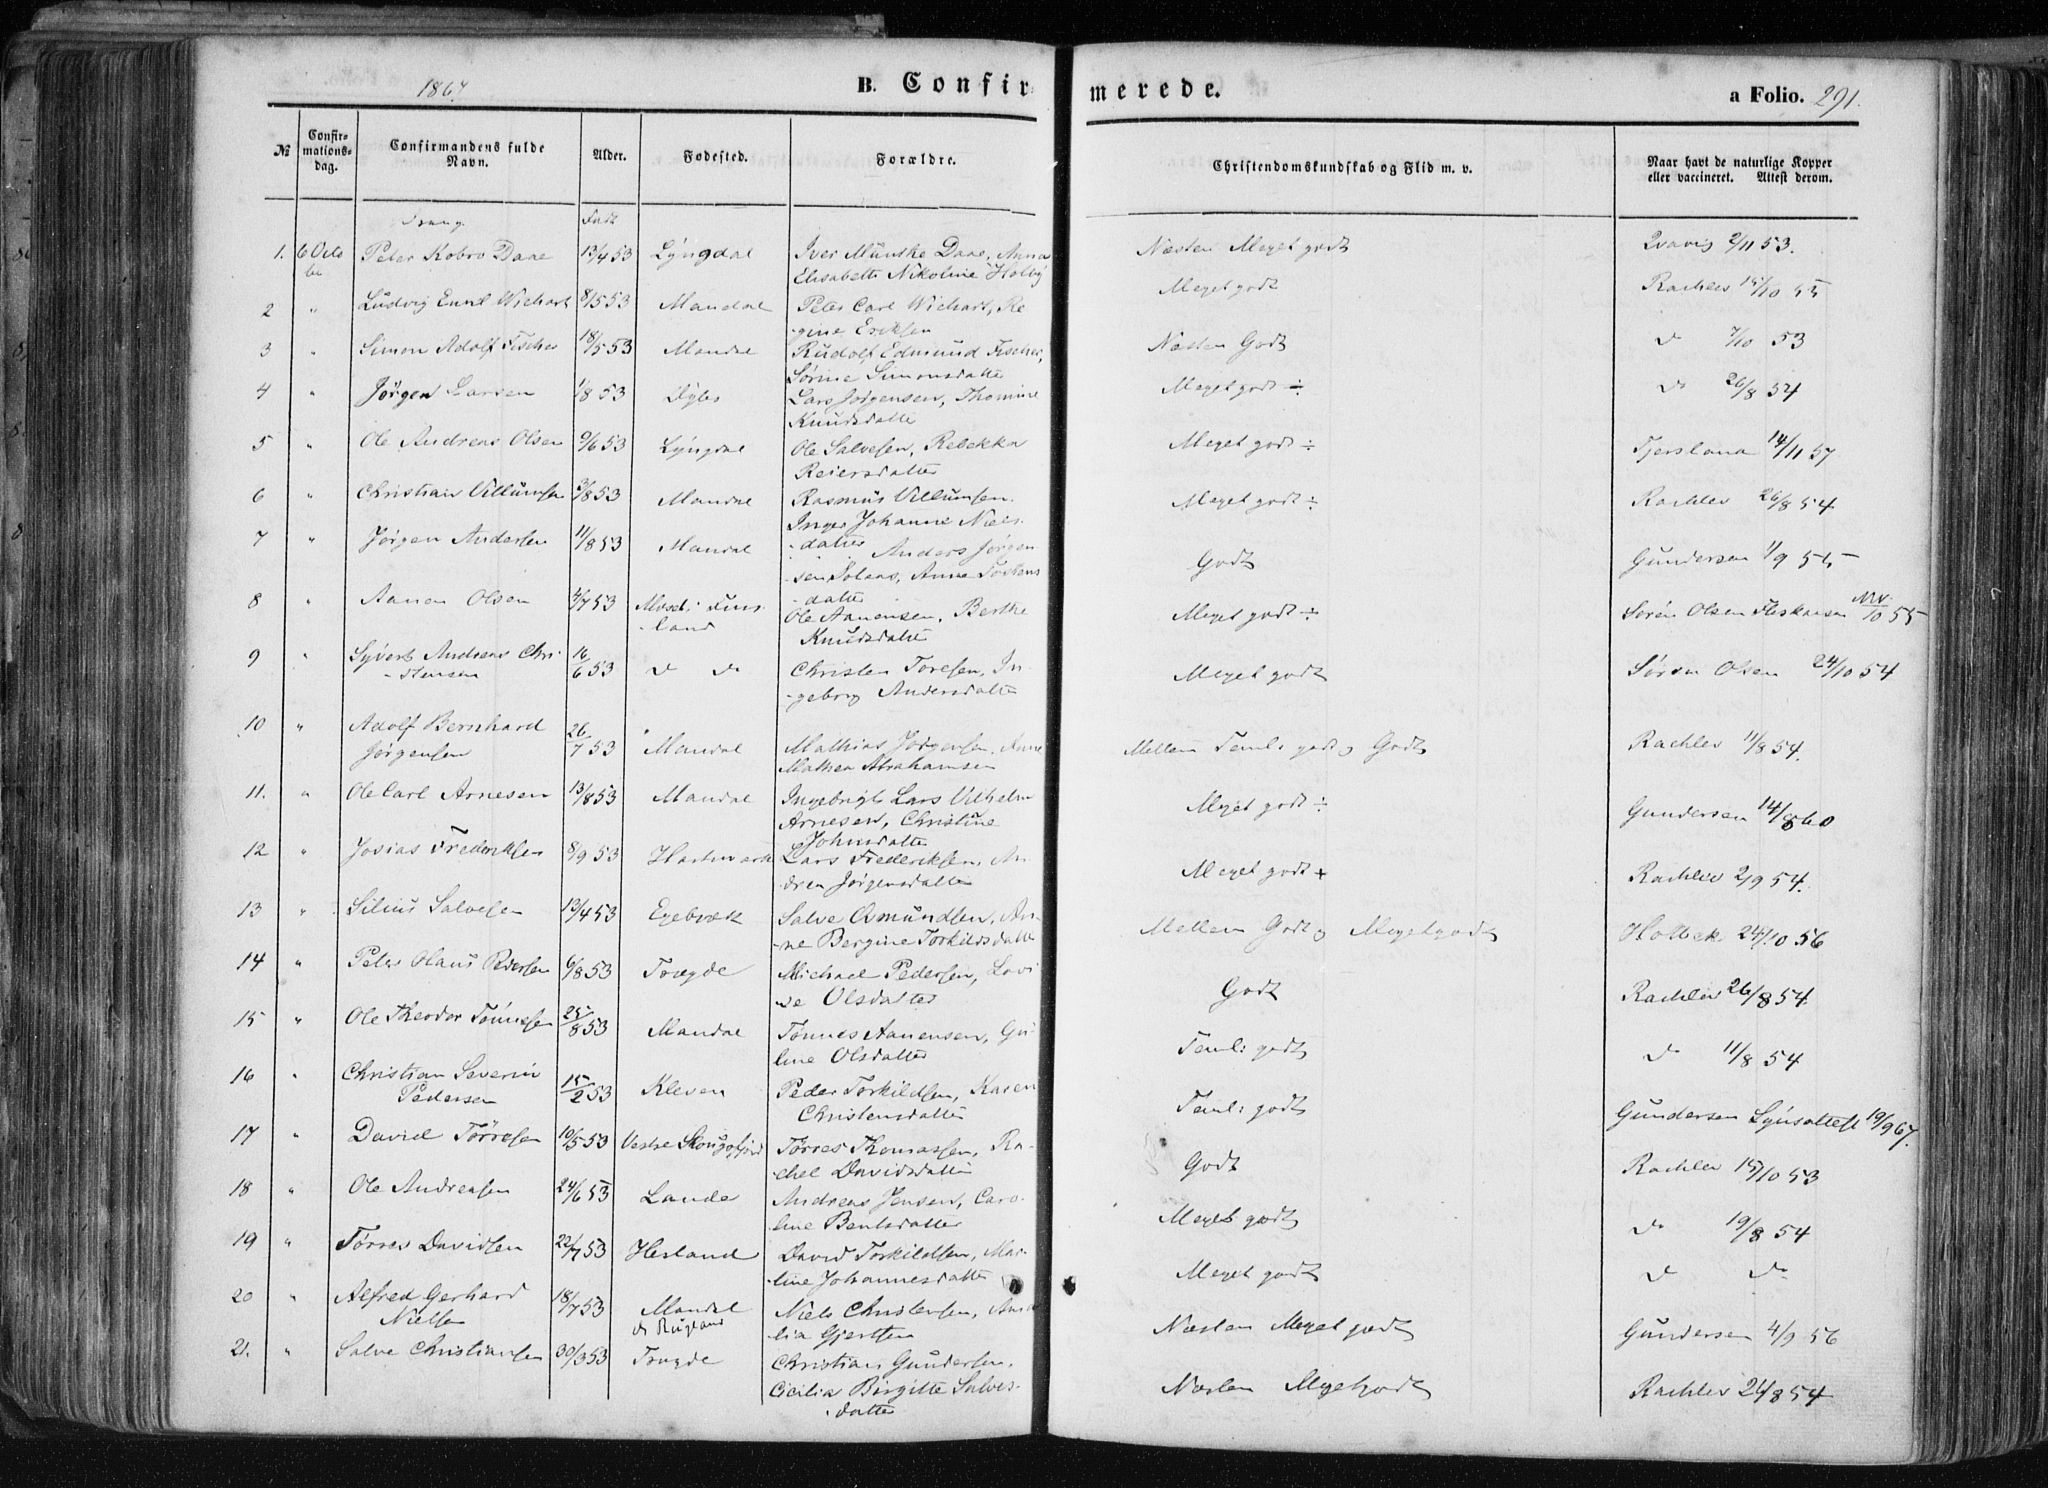 1867.
B. Confirmerede.
a Folio. 291.
№
Confirmationsdag.
Confirmandens fulde Navn.
Alder.
Fødested.
Forældre.
Christendomskundskab og Flid m. v.
Naar havt de naturlige Kopper eller vaccineret. Attest derom.
Drenge
1. 6 Octobr Peter Kobro Daae 13/4 53 Lyngdal Iver Munthe Daae, Anna Næsten Meget godt 2/11 53.
Elisabeth Nikoline
2 " Ludvig Emil Wichart 8/5 53 Mandal Peter Carl Wichart, Re Meget godt Rachlev 15/10 55
gine Eriksen
3 " Simon Adolf Fischer 18/5 53 Mandal Rudolf Edmund Fischer, Næsten Godt do 7/10 53
Sørine Simonsdatter
4 " Jørgen Larsen 1/8 53 Lars Jørgensen, Thomine Meget godt ÷ do 26/8 54
Knudsdatter
5 " Ole Andreas Olsen 9/6 53 Lyngdal Ole Salvesen, Rebekka Meget godt ÷ Tjersland 14/11 57
Reiersdatter
6 " Christian Villumsen 3/8 53 Mandal Rasmus Villumsen. Meget godt ÷ Rachlev 26/8 54
Inger Johanne Niels-
7 " Jørgen Andersen 11/8 53 Mandal datter Anders Jørgen Godt Gundersen 1/9 55
sen Anne Torkels
8 " Aanon Olsen 4/7 53 Finsland datter Meget godt ÷ Søren Olsen 10 55
Ole Aanensen, Berthe
Knudsdatter
9 " Syvert Andreas Chri- 16/6 53 do do Christen Toresen, In- Meget godt Søren Olsen 24/10 54
stensen geborg Andersdatter
10 " Adolf Bernhard 26/7 53 Mandal Mathias Jørgensen, Anne Mellem Teml: godt og Godt Rachlev 11/8 54.
Jørgensen Mathea Abrahamsen
11. " Ole Carl Arnesen 13/8 53 Mandal Ingebrigt Lars Vilhelm Meget godt ÷ Gundersen 14/8 60
Arnesen, Christine
Johnsdatter
12 " Josias Frederiksen 8/9 53 Hartmark Lars Frederiksen, An- Meget godt + Rachlev 2/9 54.
drea Jørgensdatter
13 " Silius Salvesen 13/4 53 Egebræk Salve Osmundsen, An- Mellem Godt og Meget godt Holbek 24/10 56
ne Bergine Torkildsdatter
14 " Peter Hans Pedersen 6/8 53 Trygde Michael Pedersen, Lovi Godt Rachlev 26/8 54
se Olsdatter
15 " Ole Theodor Tønnesen 25/8 53 Mandal Tønnes Aanensen, Gu- Teml: godt do 11/8 54
line Olsdatter
16 " Christian Severin 15/2 53 Kleven Peder Torkildsen, Karen Teml: godt Gundersen 19/9 67.
Pedersen Christensdatter
17 " David Tørresen 10/5 53 Vestre Skougsfjord Tørres Thomassen, Ra- Godt Rachlev 15/10 53
chel Davidsdatter
18 " Ole Andreasen 24/6 53 Lande Andreas Jensen, Caro- Meget godt do 19/8 54
line Bentsdatter
19 " Tørres Davidsen 22/7 53 Hesland David Torkildsen, Mar- Meget godt do do
line Johannesdatter
20 " Alfred Gerhard 18/7 53 Mandal Niels Christensen, Ama Næsten Meget godt Gundersen 4/9 56
Nielsen lia Gjertsen
21. " Salve Christiansen 30/3 53 Trygde Christian Gundersen. Næsten Meget godt Rachlev 24/8 54
Cicilia Birgitte Salves-
datter